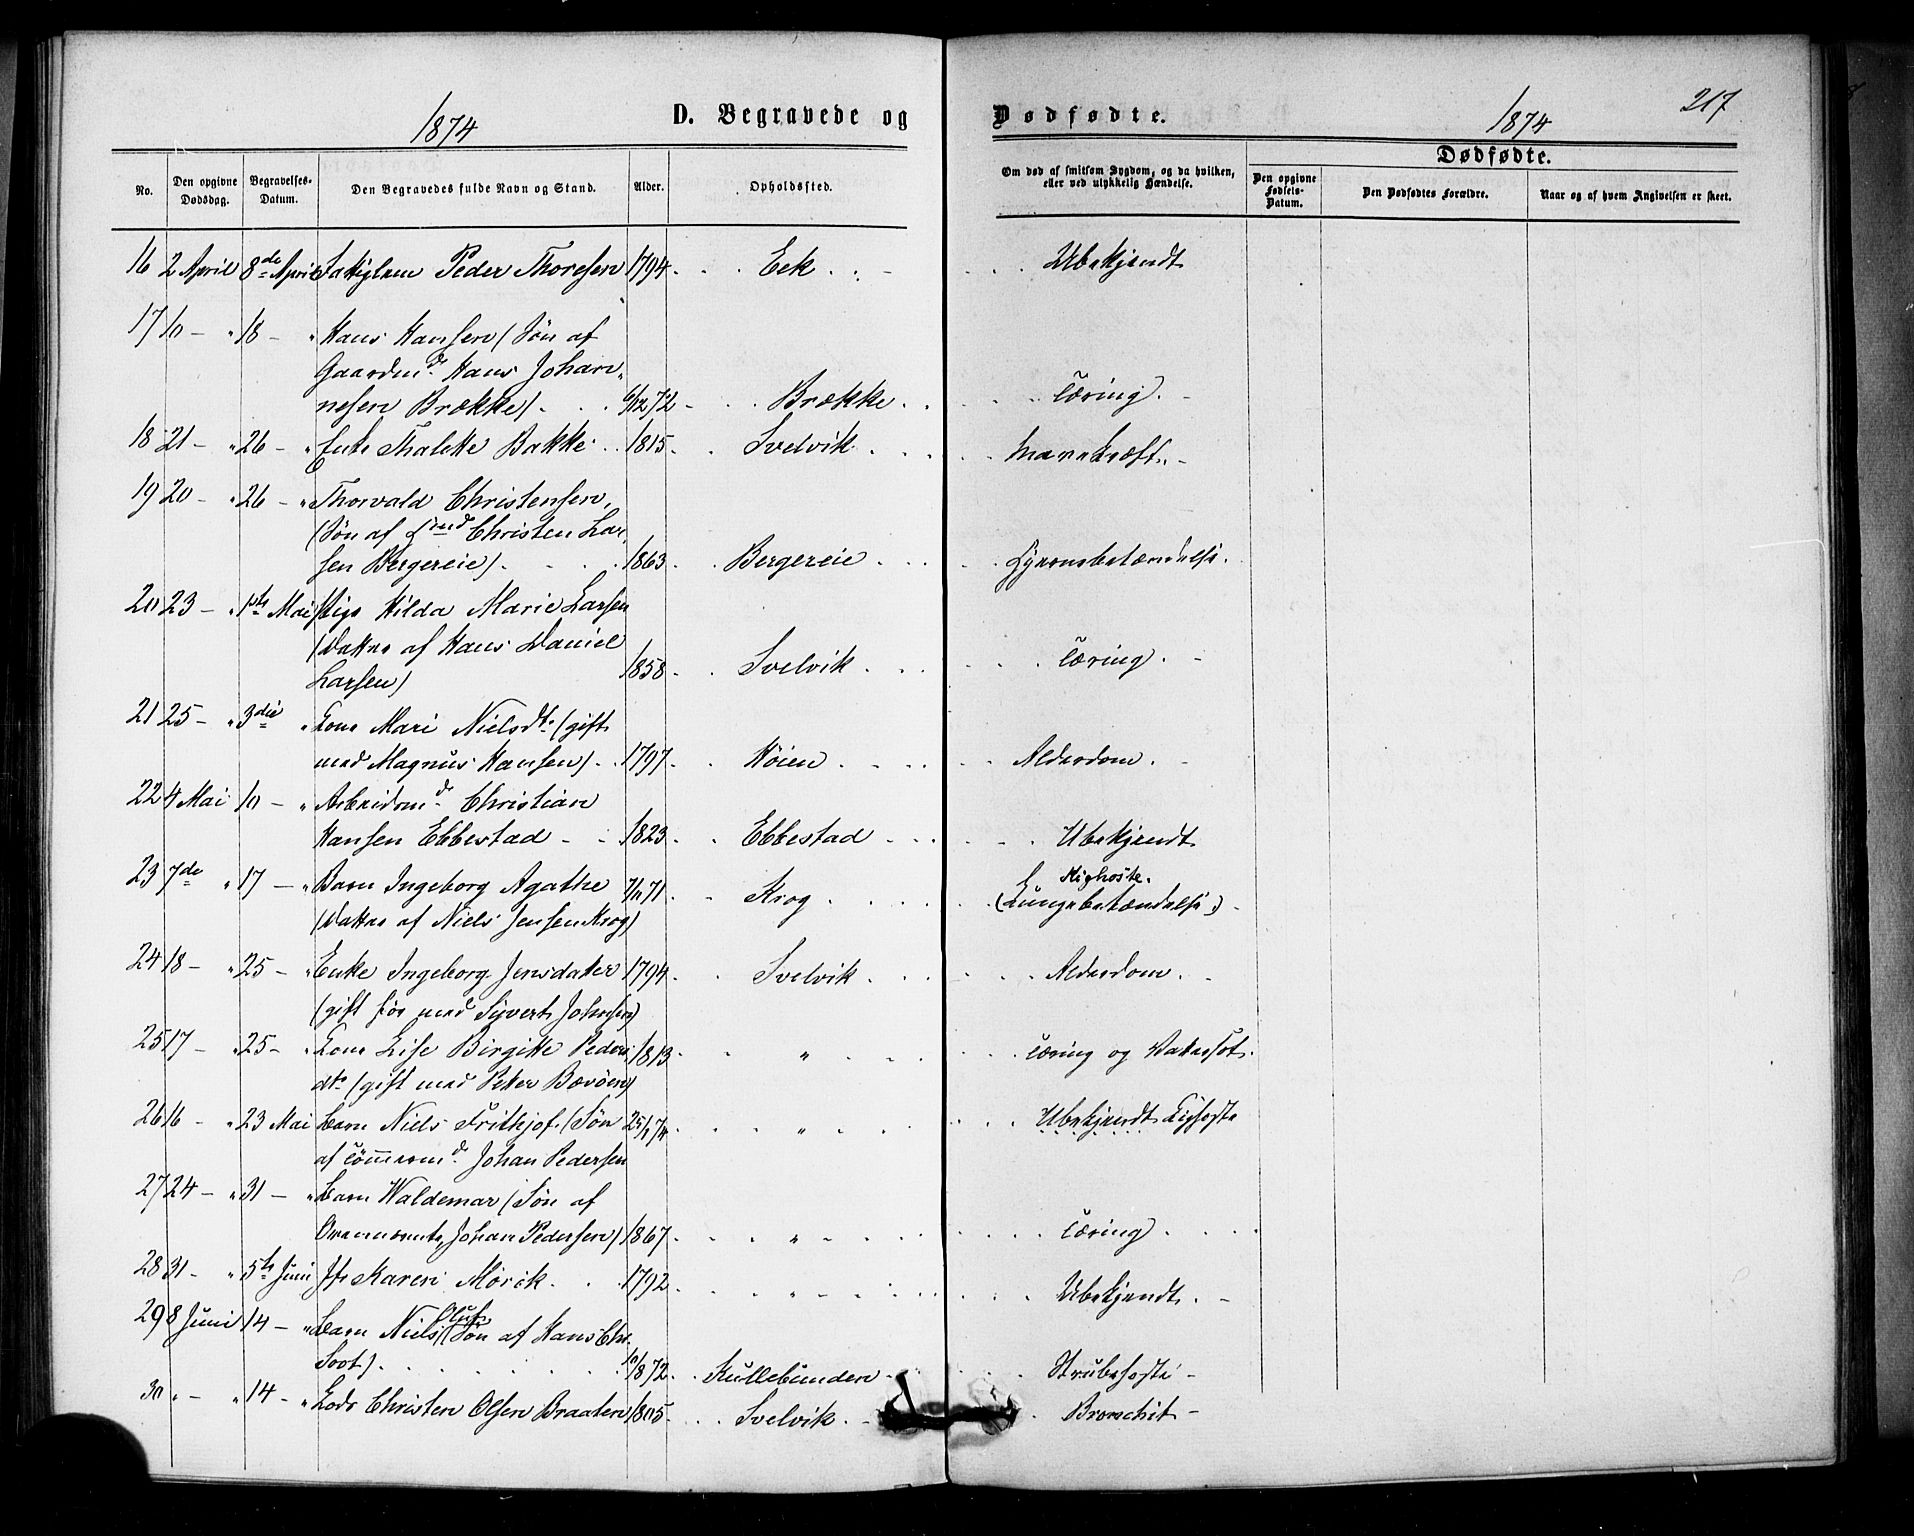 217
1874 D. Begravede og Dødfødte. 1874
No. Den opgivne Dødsdag. Begravelses-Datum. Den Begravedes fulde Navn og Stand. Alder. Opholdssted. Om død af smitsom Sygdom, og da hvilken, eller ved ulykkelig Hændelse. Dødfødte.
Den opgivne Fødsels-Datum. Den Dødfødtes Forældre. Naar og af hvem Angivelsen er skeet.
16 2 April 8de April Peder Thoresen 1794 Eek Ubekjendt
17 10 - " 18 - " Hans Hansen (Søn af
Gaardmd. Hans Johan-
nesen Brække) 6/12 72 Brække Tæring
18 21 - " 26 - " Enke Thalette Bakke 1815 Svelvik Mavekræft
19 20 - " 26 - " Thorvald Christensen,
(Søn af Christen Lar-
sen Bergereie) 1863 Bergereie Hjernebetændelse
20 23 - " 1ste Mai Pige Hilda Marie Larsen
(Datter af Hans Daniel
Larsen) 1858 Svelvik Tæring
21 25 - " 3die " Kone Mari Nielsdt. (gift
med Magnus Hansen) 1797 Høien Alderdom
22 4 Mai 10 - " Arbeidsmd. Christian
Hansen Ebbestad 1823 Ebbestad Ubekjendt
23 7de " 17 - " Barn Ingeborg Agathe 7/11 71 Krog Kighoste.
(Datter af Niels Jensen Krog) (Lungebetændelse)
24 18 - " 25 - " Enke Ingeborg Jensdatter 1794 Svelvik Alderdom
(gift før med Syvert Johnsen)
25 17 - " 25 - " Kone Lise Birgitte Peders- 1813 " Tæring og Vatersot
dtr (gift med Peter Bævøen)
26 16 - " 23 Mai Barn Niels Frithjof (Søn 25/1 74 " Ubekjendt Kighoste
af Tømmermd. Johan Pedersen
27 24 - " 31 - " Barn Waldemar (Søn af
Johan Pedersen) 1867 " Tæring
28 31 - " 5te Juni Karen Mørck 1792 " Ubekjendt
29 8 Juni 14 - " Barn Niels Oluf (Søn af Hans Chr.
Soot) 10/8 72 Kullebunden Strubehoste
30 " - " 14 - " Lods Christen Olsen Braaten 1805 Svelvik Bronchit